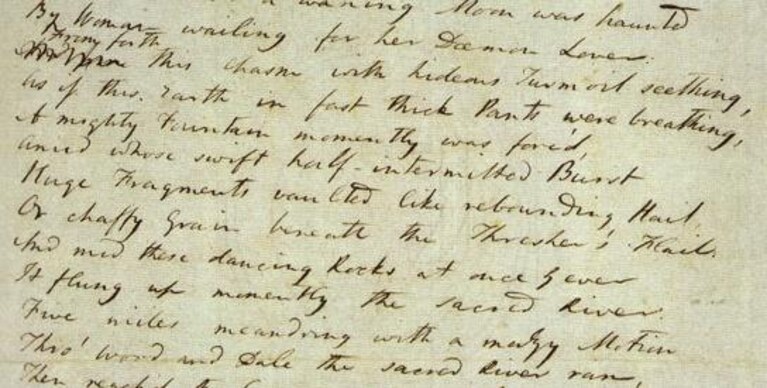 a waning Moon was haunted
By Woman wailing for her Dæmon Lover:
From forth this chasm with hideous Turmoil seething,
As if this Earth in fast thick Pants were breathing,
A mighty Fountain momently was forc'd,
Amid whose swift half-intermitted Burst
Huge Fragments vaulted like rebounding Hail,
Or chaffy Grain beneath the Thresher's Flail.
And mid these dancing Rocks at once & ever
It flung up momently the sacred River.
Five miles meandring with a mazy Motion
Thro' Wood and Dale the sacred River ran,
Then reach'd the